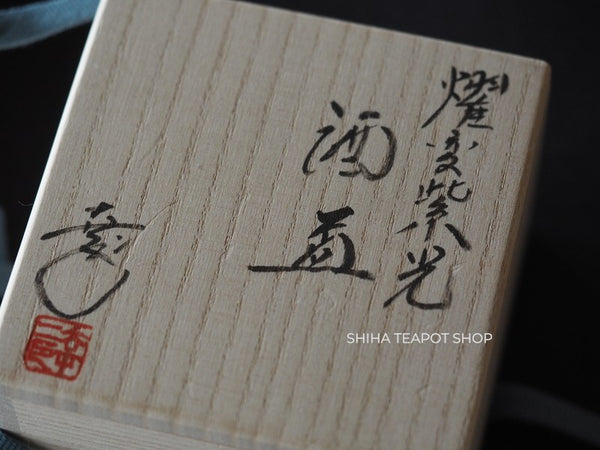 燿変紫光
酒盃
SHIHA TEAPOT SHOP